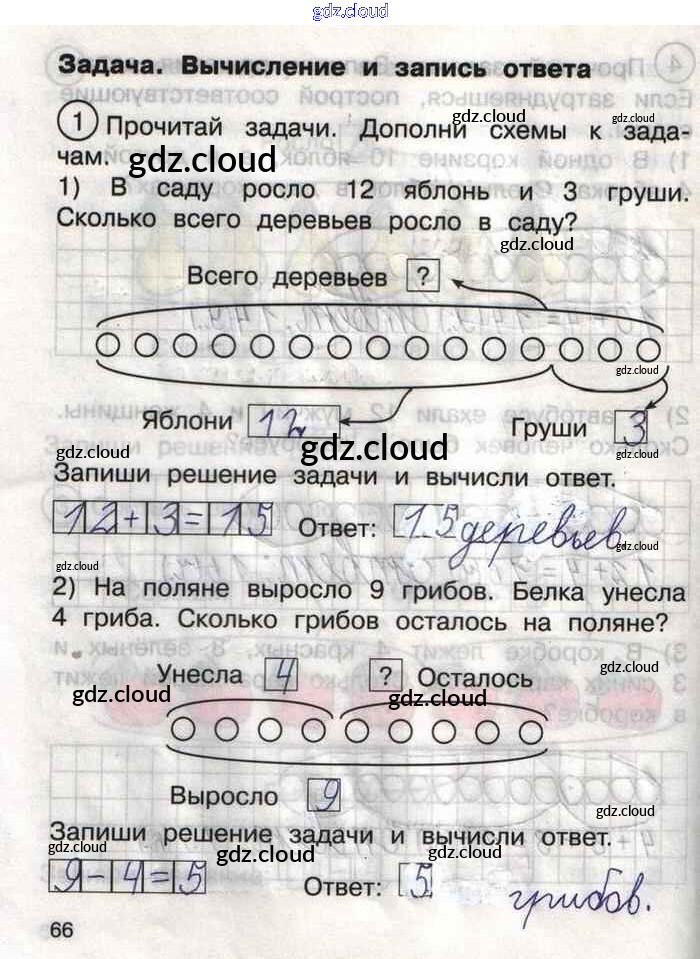 gdz.cloud
Задача. Вычисление и запись ответа
gdz.cloud
1 Прочитай задачи. Дополни схемы к зада-
чам. gdz.cloud
1) В саду росло 12 яблонь и 3 груши.
Сколько всего деревьев росло в саду?
gdz.cloud
Всего деревьев ?
gdz.cloud
gdz.cloud
Яблони 12 Груши 3
gdz.cloud gdz.cloud
Запиши решение задачи и вычисли ответ.
12+3=15 Ответ: 15 деревьев
gdz.cloud
gdz.cloud
2) На поляне выросло 9 грибов. Белка унесла
4 гриба. Сколько грибов осталось на поляне?
gdz.cloud
Унесла 4 ? Осталось
gdz.cloud gdz.cloud
Выросло 9
gdz.cloud
Запиши решение задачи и вычисли ответ.
gdz.cloud gdz.cloud gdz.cloud
9-4=5 Ответ: 5 грибов.
66